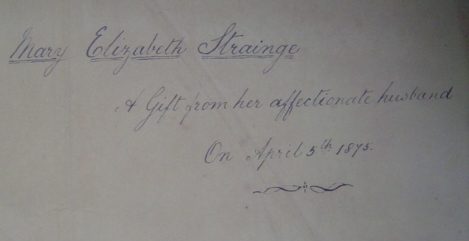 Mary Elizabeth Strainge
A Gift from her affectionate husband
On April 5th 1875.